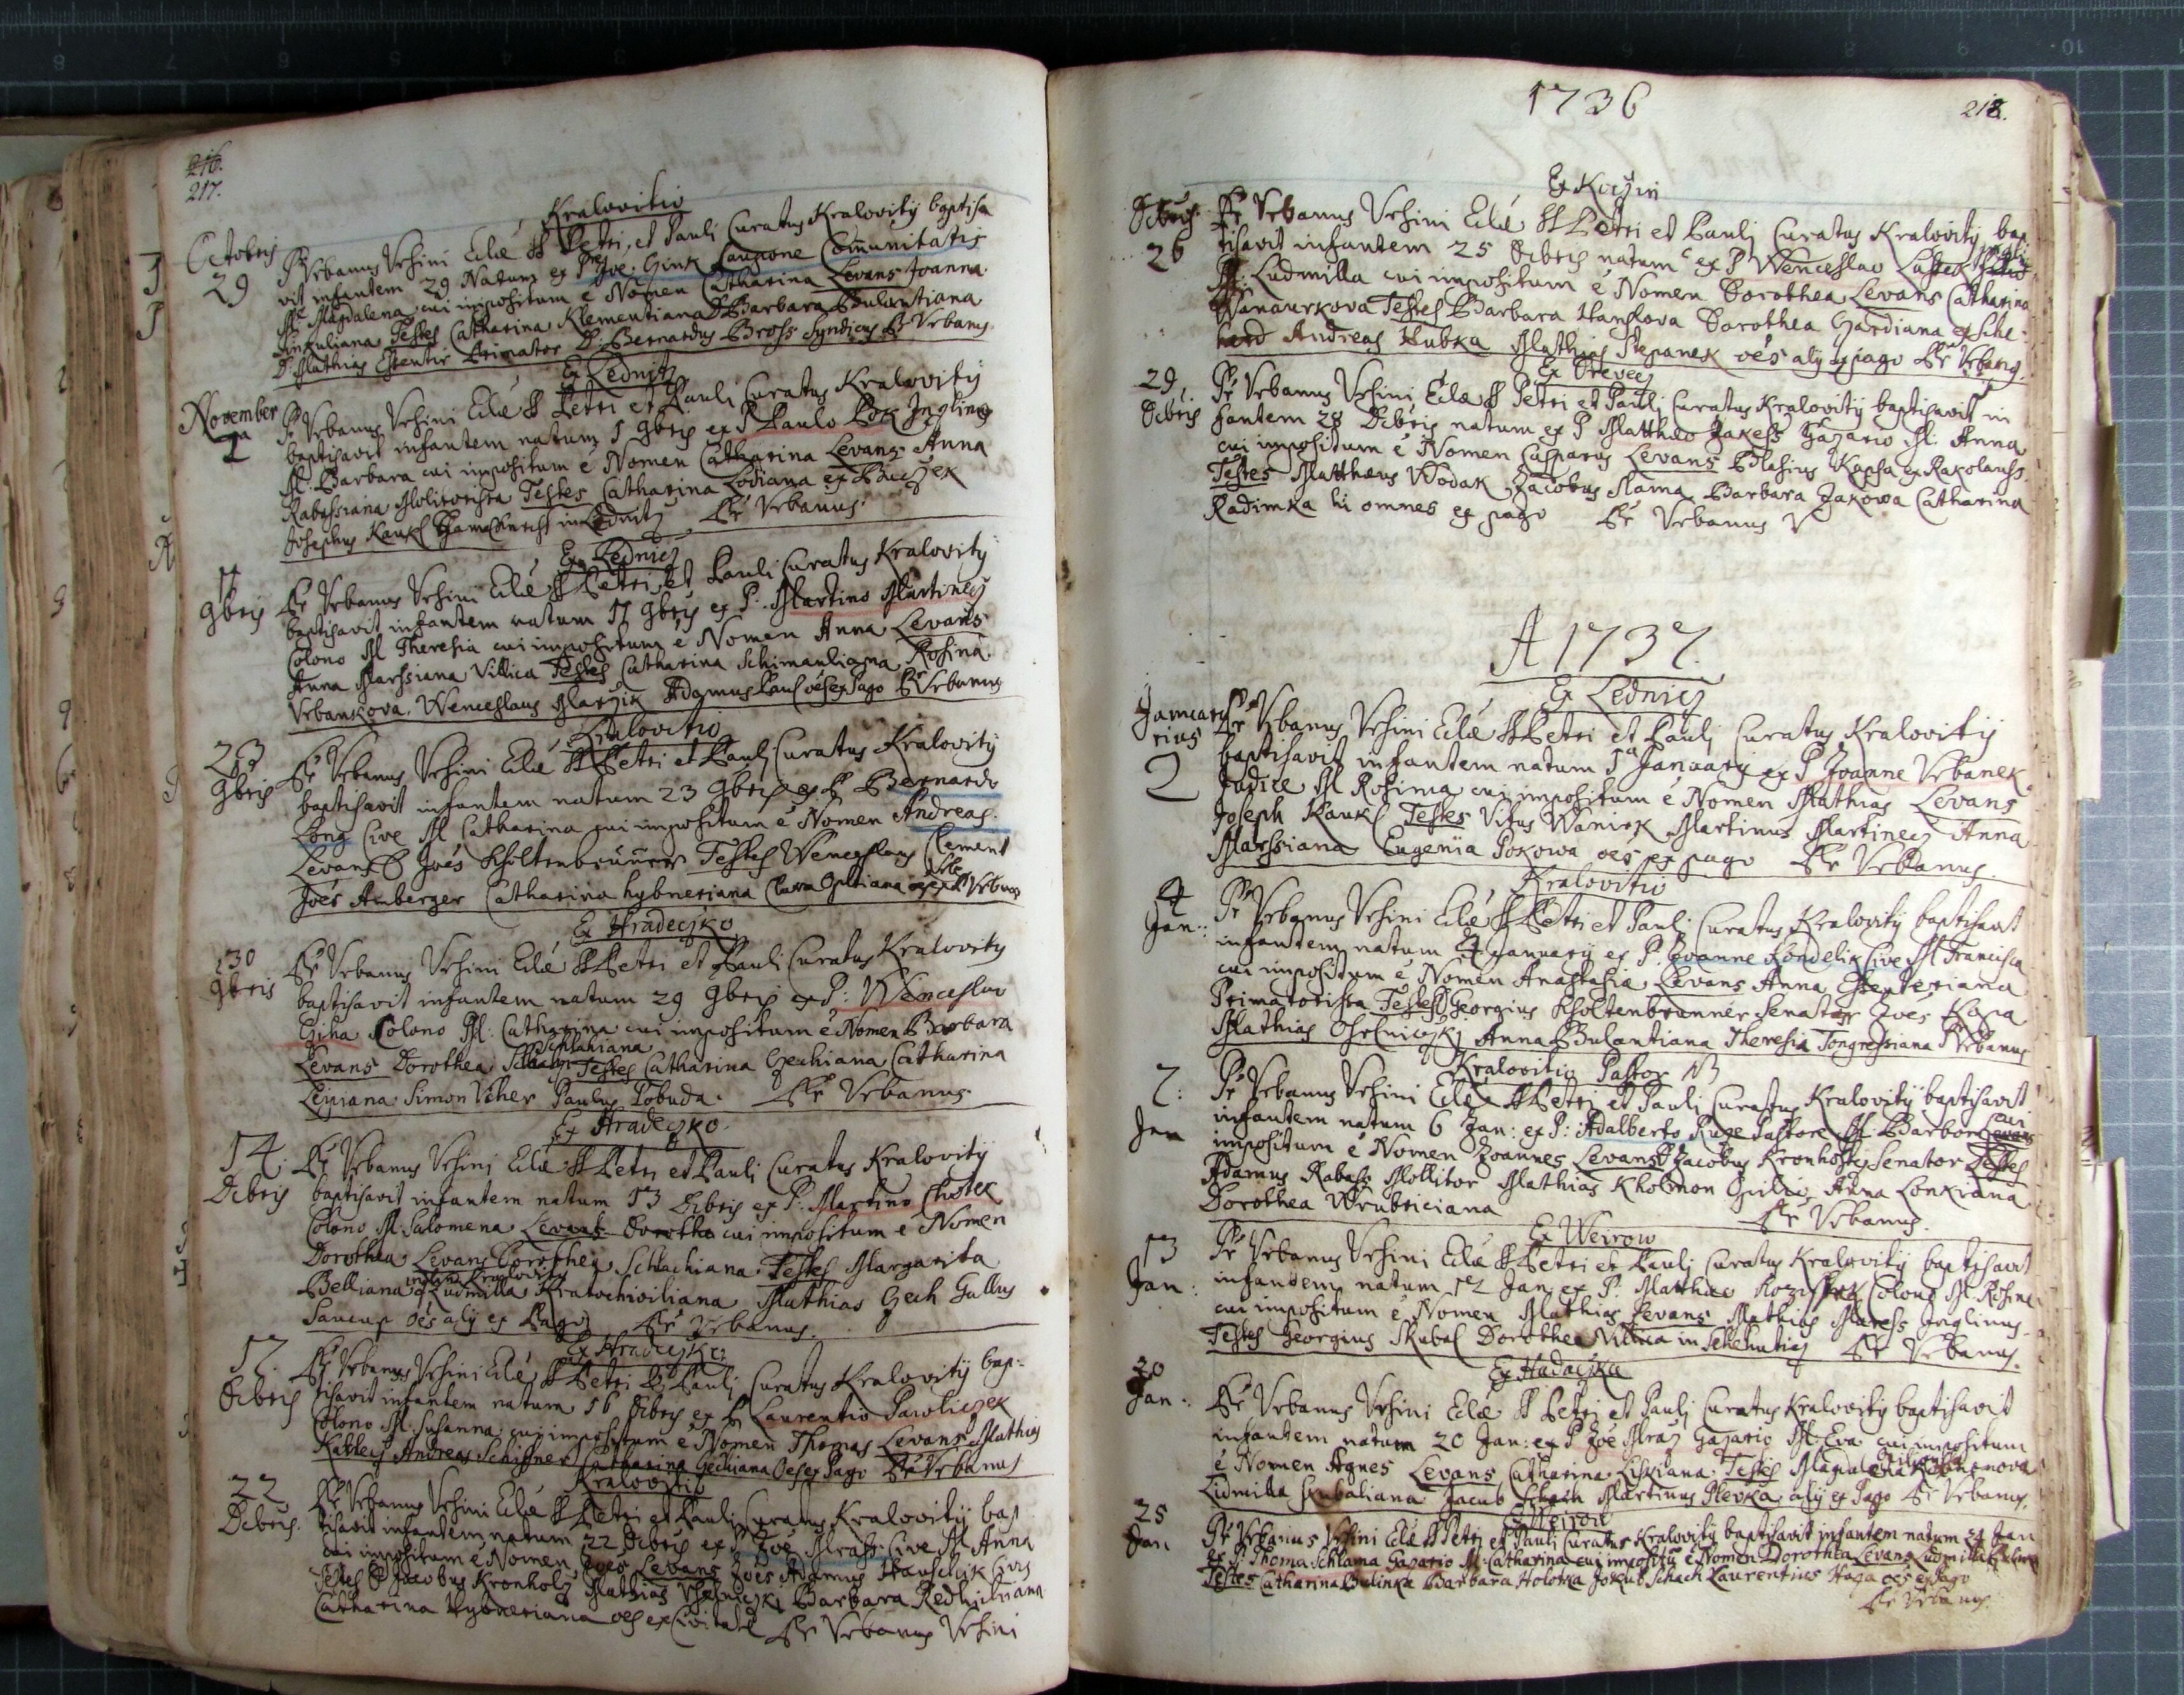 216.
217.
Kralovitio
Octobris
29
Pr Urbanus Vrsini Eclae SS Petri, et Pauli Curatus Kralovity baptisa
vit infantem 29 Natum ex Pre Joe Gink Caupone Communitatis
M Magdalena cui impositum e Nomen Catharina Levans Joanna
Testes Catharina Klementiana Barbara Bulantiana
D. Mathias Primator D. Bernardus Bross Syndicus Pr Urbanus.
Ex Lednitz
November
1
Pr Urbanus Vrsini Eclae SS Petri et Pauli Curatus Kralovity
baptisavit infantem natum 1 9bris ex P Paulo Pok Inqlino
M. Barbara cui impositum e Nomen Catharina Levans Anna
Rabassiana Molitorissa Testes Catharina Lodiana ex
Josephus Kaukl in Lednitz Pr Urbanus.
Ex Lednicz
9bris
Pr Urbanus Vrsini Eclae SS Petri et Pauli Curatus Kralovity
baptisavit infantem natum 9bris ex P. Martino Martinecz
Colono M Theresia cui impositum e Nomen Anna Levans
Anna Marssiana Villica Testes Catharina Schimanliana Rosina
Urbankova. Wenceslaus Marzik Adamus Paul oes ex Pago Pr Urbanus
Kralovitio
23
9bris
Pr Urbanus Vrsini Eclae SS Petri et Pauli Curatus Kralovity
baptisavit infantem natum 23 9bris ex P Bernardo
Long Cive M Catharina cui impositum e Nomen Andreas.
Levans Joes Sholtenbrunner Testes Wenceslaus Clement
Joes Amberger Catharina hybneriana Clara Opltiana Pr Urbanus
Ex Hradeczko
30
9bris
Pr Urbanus Vrsini Eclae SS Petri et Pauli Curatus Kralovity
baptisavit infantem natum 29 9bris ex P: Wenceslao
Giha Colono M: Catharina cui impositum e Nomen Barbara
Schlahiana
Levans Dorothea Testes Catharina Gechiana Catharina
Simon Vcher Paulus Pobuda. Pr Urbanus.
Ex Hradeczko.
14.
Dcbris
Pr Urbanus Vrsini Eclae SS Petri et Pauli Curatus Kralovity
baptisavit infantem natum 13 Dcbris ex P. Martino Chotek
Colono M. Salomena Levans Dorothea cui impositum e Nomen
Dorothea Levans Dorothea Schlachiana. Testes Margarita
Belliana Ludmilla Kratochwiliana Mathias Gech Gallus
oes aly ex Pago Pr Urbanus.
Ex Hradeczko
17.
Dcbris
Pr Urbanus Vrsini Eclae SS Petri et Pauli Curatus Kralovity bap-
tisavit infantem natum 16 Dcbris ex P Laurentio Pawliczek
Colono M. Susanna cui impositum e Nomen Thomas Levans Mathias
Andreas Schiffner Catharina Gechiana Oes ex Pago Pr Urbanus
Kralovitio
22
Dcbris.
Pr Urbanus Vrsini Eclae SS Petri et Pauli Curatus Kralovity bap
tisavit infantem natum 22 Dcbris ex P Joe Mrass Cive M Anna
cui impositum e Nomen Joes Levans Joes Adamus Hauschik Civis
Testes Jacobus Kronholz Mathias Barbara
Catharina Hybneriana oes ex Civitate Pr Urbanus Vrsini
1736
218.
Ex Kocjin
Dcbris
26
Pr Urbanus Vrsini Eclae SS Petri et Pauli Curatus Kralovity bap
tisavit infantem 25 Dcbris natum ex P Wenceslao
M: Ludmilla cui impositum e Nomen Dorothea Levans Catharina
Testes Barbara Hanslova Dorothea Gardiana
Andreas Hubka Mathias Stepanek oes aly ex pago Pr Urbanus.
29.
Dcbris
Pr Urbanus Vrsini Eclae SS Petri et Pauli Curatus Kralovity baptisavit in
fantem 28 Dcbris natum ex P Mattheo Jakess Gazario M. Anna
cui impositum e Nomen Casparus Levans Blasius Kapsa ex Rakolauss.
Testes Matthaeus Wodak, Jacobus Slama Barbara Jakowa Catharina
Radimka hi omnes ex pago Pr Urbanus V
A 1737.
Ex Lednicz
Januarius
2
Pr Urbanus Vrsini Eclae SS Petri et Pauli Curatus Kralovitis
baptisavit infantem natum 1 January ex P Joanne Urbanek
Judice M Rosina cui impositum e Nomen Mathias Levans
Joseph Kaukl Testes Vitus Waniek Martinus Martinecz Anna
Marssiana Eugenia Pokowa oes ex pago Pr Urbanus.
Kralovitio
4
Jan:
Pr Urbanus Vrsini Eclae SS Petri et Pauli Curatus Kralovity baptisavit
infantem natum 4 January ex P. Joanne Kondelik Cive M Francisca
cui impositum e Nomen Anastasia Levans Anna
Primatorissa Testes Georgius Sholtenbrunner Senator Joes Kopa
Mathias Anna Bulantiana Theresia Tongressiana Pr Urbanus
Kralovitio Pastor
7:
Jan
Pr Urbanus Vrsini Eclae SS Petri et Pauli Curatus Kralovity baptisavit
infantem natum 6 Jan: ex P: Adalberto Ruze Pastore M Barbora cui
impositum e Nomen Joannes Levans Jacobus Kronholtz Senator Testes
Adamus Rabass Mollitor Mathias Anna Lonkiana
Dorothea Wrubiciana Pr Urbanus.
Ex Weirow
13
Jan:
Pr Urbanus Vrsini Eclae SS Petri et Pauli Curatus Kralovity baptisavit
infantem natum 12 Jan ex P. Mattheo Colono M. Rosina
cui impositum e Nomen Mathias Levans Mathias Maress Inqlinus.
Testes Georgius Skubal Dorothea Villica in Pr Urbanus.
Ex Hadaczka
20
Jan:
Pr Urbanus Vrsini Eclae SS Petri et Pauli Curatus Kralovity baptisavit
infantem natum 20 Jan: ex P Joe Mraz Gazario M. Eva cui impositum
e Nomen Agnes Levans Catharina Liskiana. Testes Magdalena
Ludmilla Skubaliana Jacub Martinus Plevka aly ex Pago Pr Urbanus.
Ex Weirow
25
Jan
Pr Urbanus Vrsini Eclae SS Petri et Pauli Curatus Kralovity baptisavit infantem natum 24 Jan
ex P. Thoma Schlama Gazario M. Catharina cui impositu e Nomen Dorothea Levans Ludmilla
Testes Catharina Bulinka Barbara Holotka Jokub Schach Laurentius Haga oes ex Pago
Pr Urbanus.